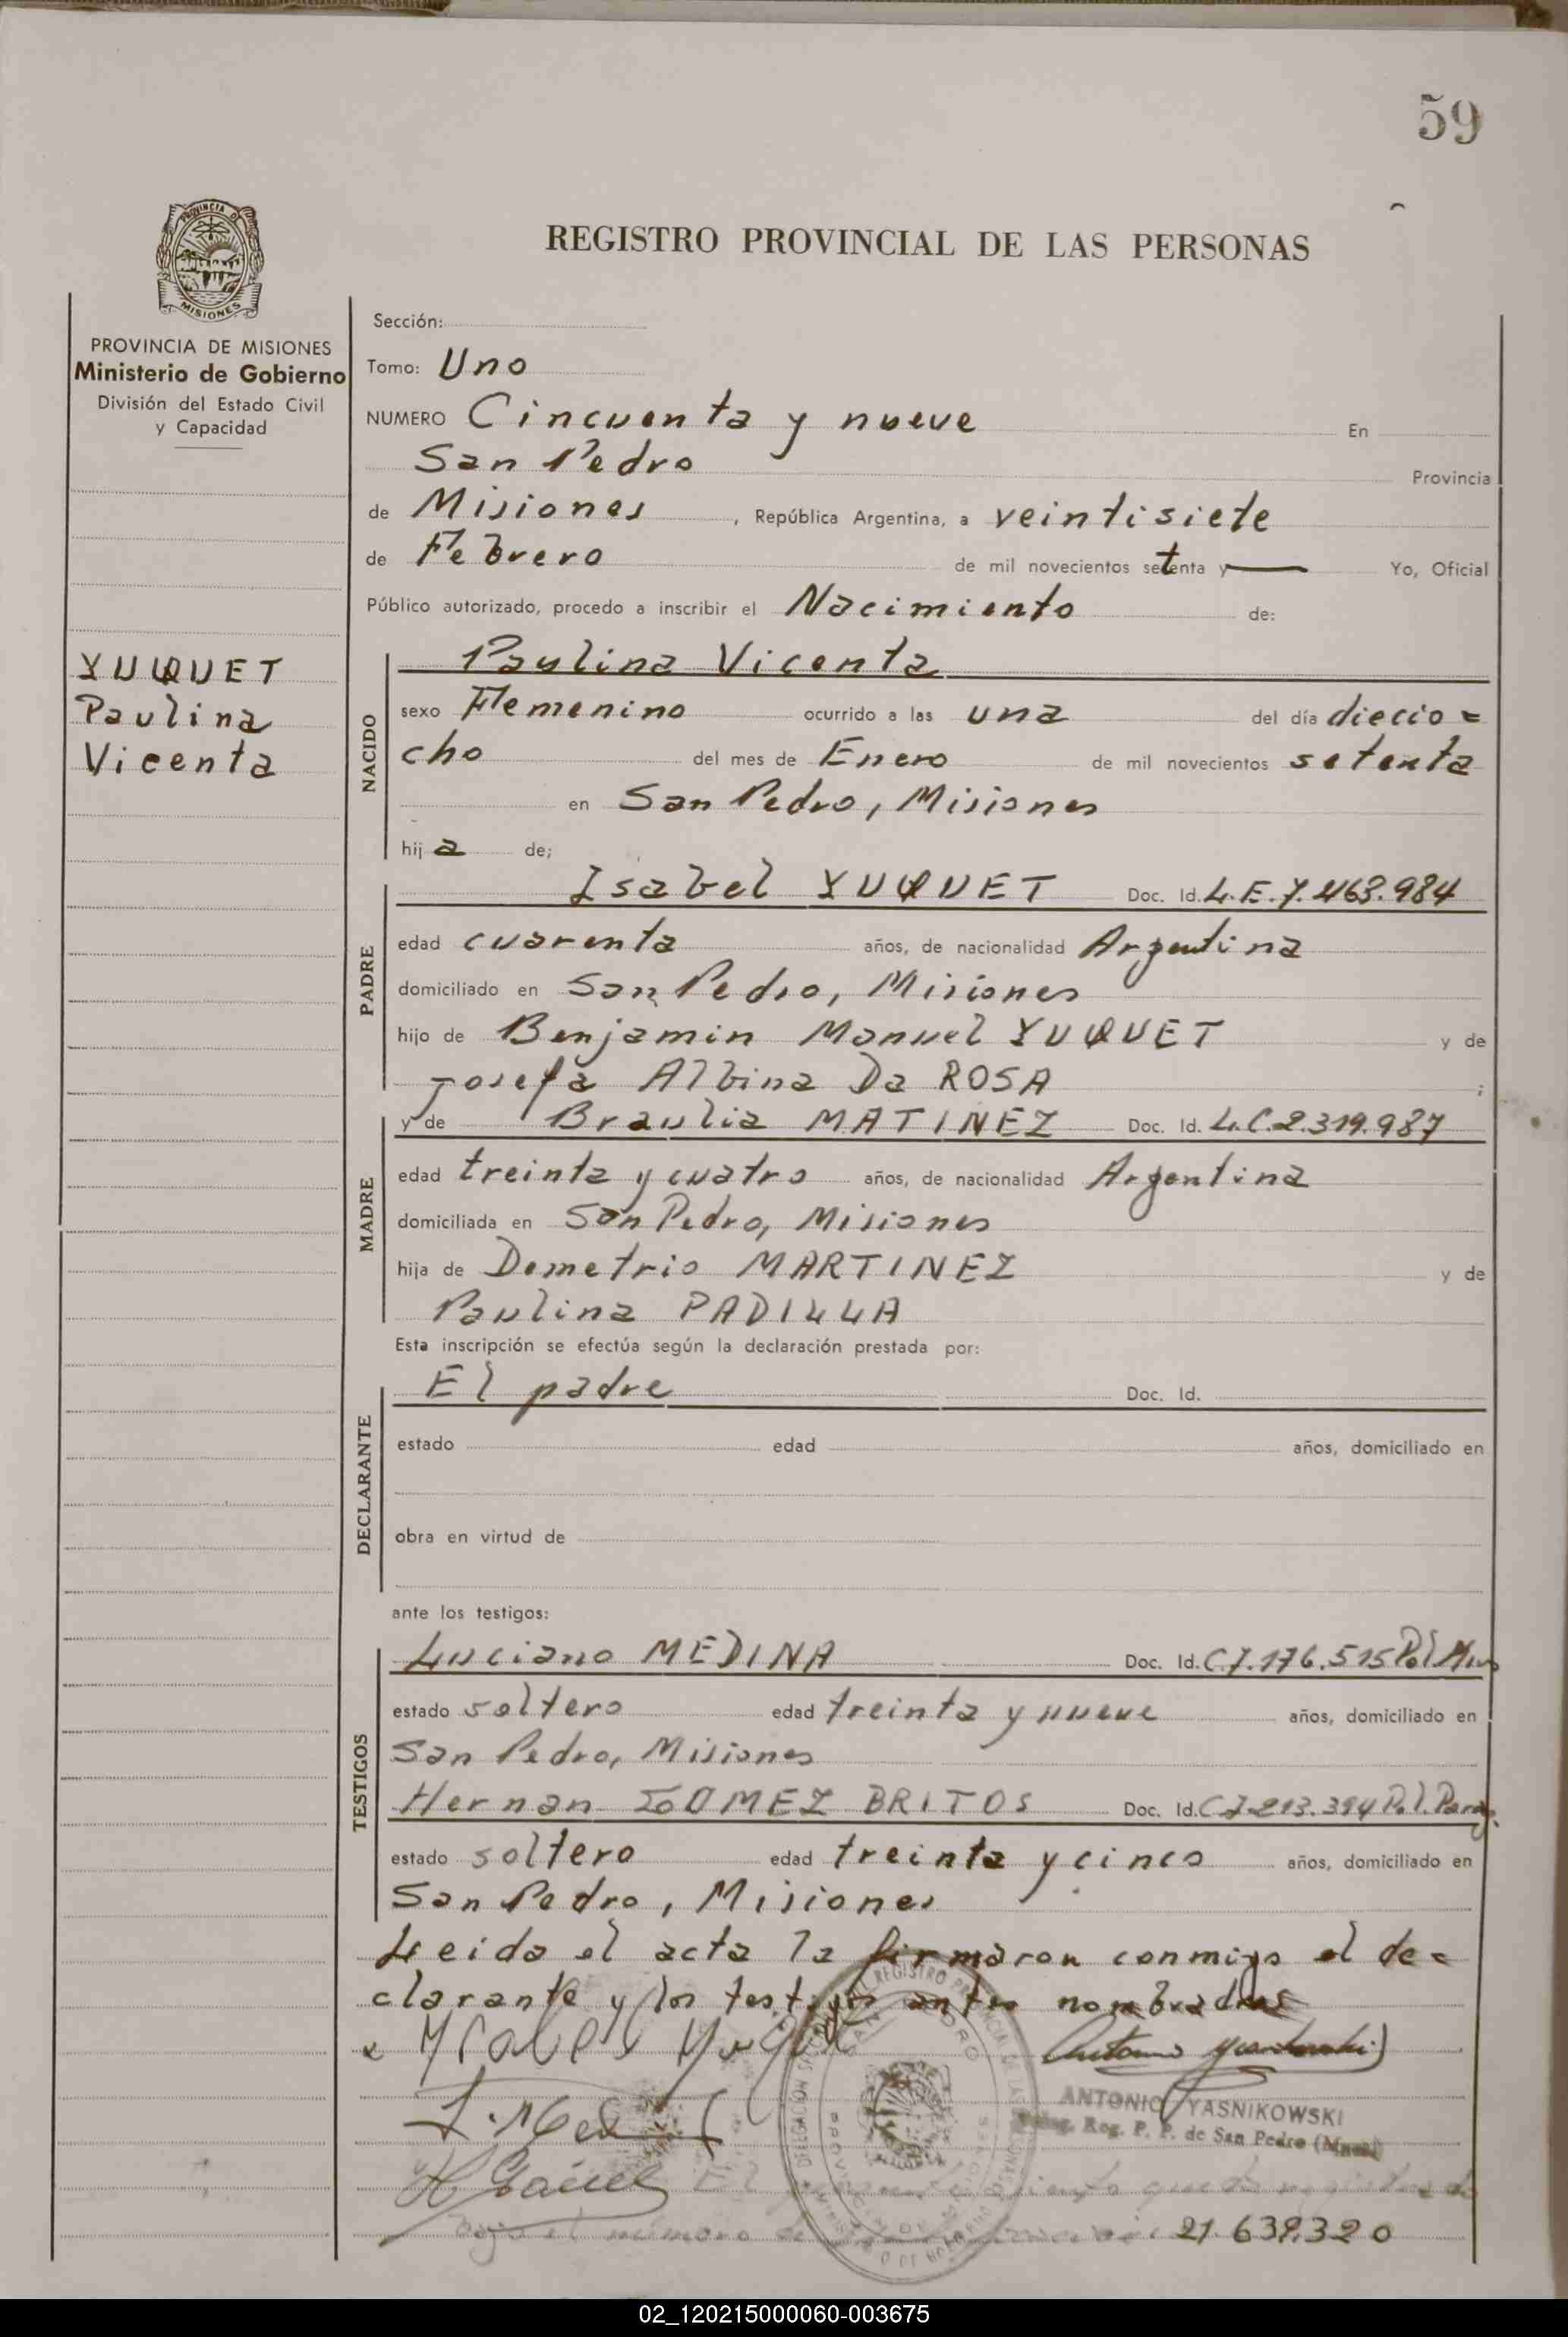 59
PROVINCIA DE
MISIONES
REGISTRO PROVINCIAL DE LAS PERSONAS
PROVINCIA DE MISIONES
Ministerio de Gobierno
División del Estado Civil
y Capacidad
YUQUET
Paulina
Vicenta
Sección:
Tomo: Uno
NUMERO Cincuenta y nueve En
San Pedro Provincia
de Misiones, República Argentina, a veintisiete
de Febrero de mil novecientos setenta y — Yo, Oficial
Público autorizado, procedo a inscribir el Nacimiento de:
NACIDO
Paulina Vicenta
sexo Femenino ocurrido a las una del día diecio=
cho del mes de Enero de mil novecientos setenta
en San Pedro, Misiones
hija de;
PADRE
Isabel YUQUET Doc. Id. L.E.7.463.984
edad cuarenta años, de nacionalidad Argentina
domiciliado en San Pedro, Misiones
hijo de Benjamin Manuel YUQUET y de
Josefa Albina Da ROSA ;
MADRE
y de Braulia MATINEZ Doc. Id. L.C.2.319.987
edad treinta y cuatro años, de nacionalidad Argentina
domiciliada en San Pedro, Misiones
hija de Demetrio MARTINEZ y de
Paulina PADILLA
Esta inscripción se efectúa según la declaración prestada por:
DECLARANTE
El padre Doc. Id.
estado edad años, domiciliado en
obra en virtud de
ante los testigos:
TESTIGOS
Luciano MEDINA Doc. Id. C.I.176.515 Pol Mnes
estado soltero edad treinta y nueve años, domiciliado en
San Pedro, Misiones
Hernan GOMEZ BRITOS Doc. Id. C.I.213.394 Pol. Parag.
estado soltero edad treinta y cinco años, domiciliado en
San Pedro, Misiones
Leida el acta la firmaron conmigo el de=
clarante y los testigos antes nombrados
ANTONIO YASNIKOWSKI
Reg. P. P. de San Pedro (Mnes)
queda registrado
bajo el número de 21.639.320
02_120215000060-003675